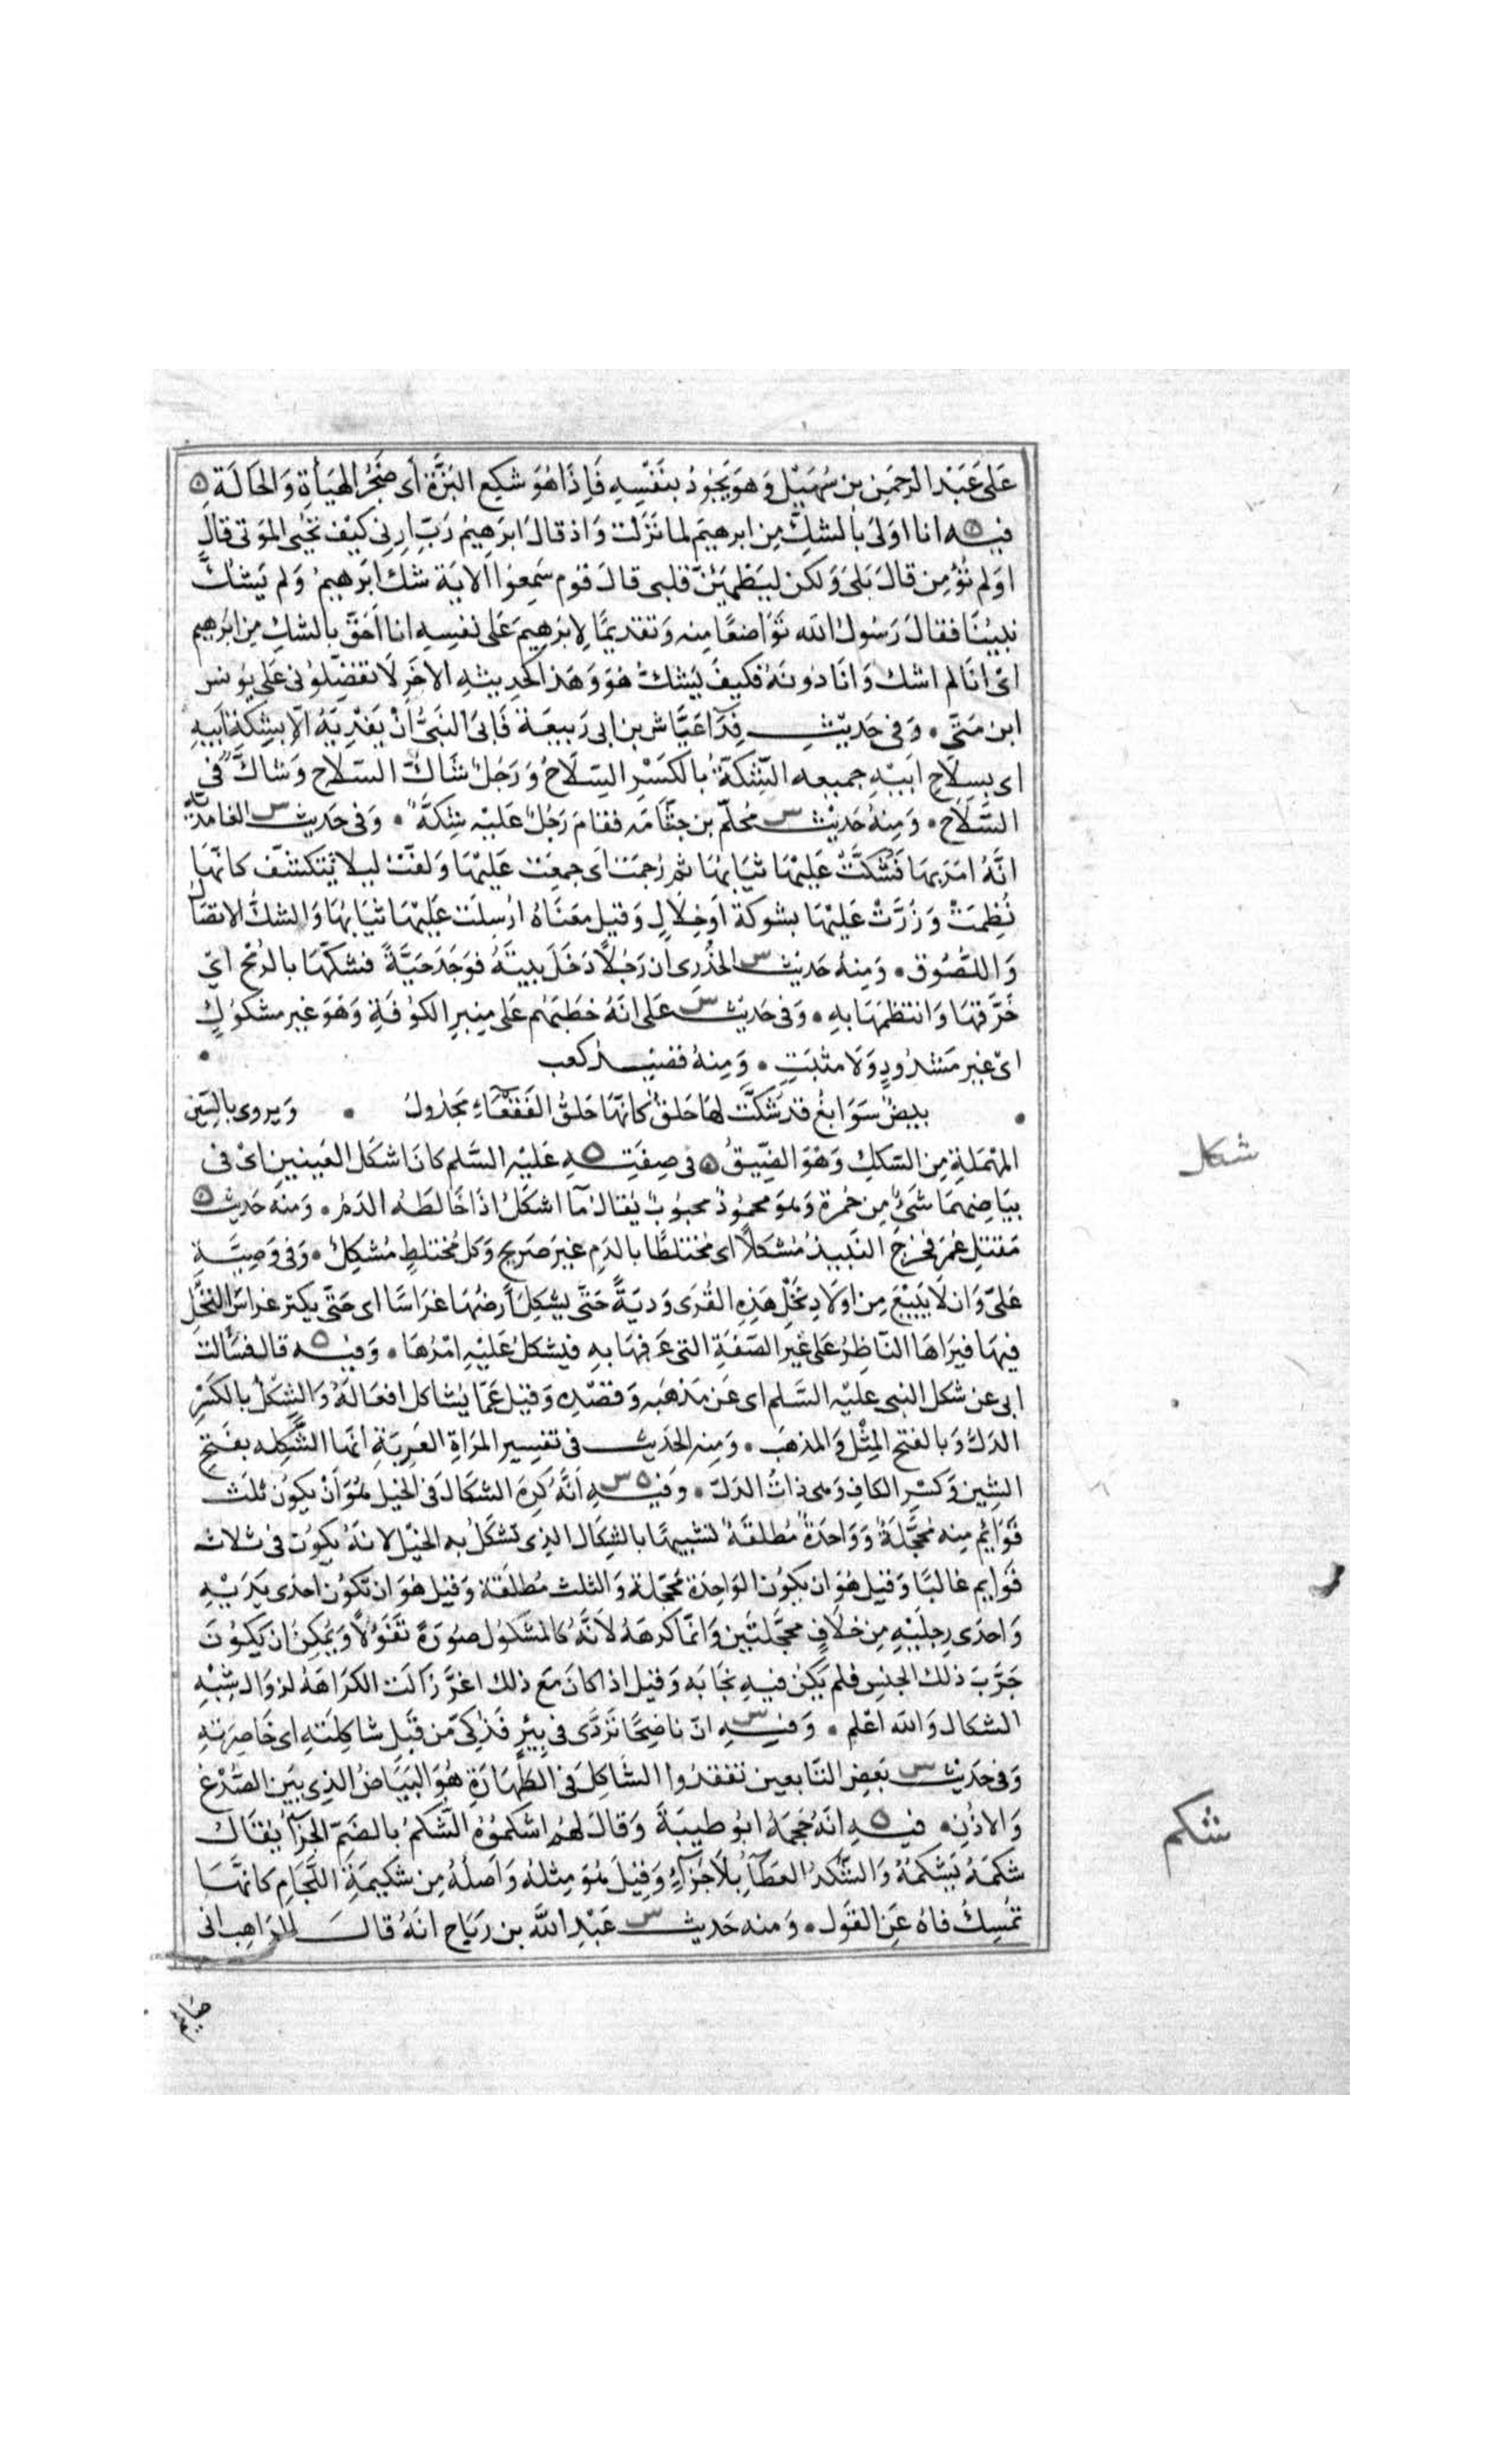 عَلى عَبْد الرحمن بن سُهَيْل وَهوَ يَجُودُ بنَفْسِهِ فَإِذَا هُوَ شَكِع البَزَّة أى ضَجُرُ الهَيأةِ وَالحَالَة ه
فيه انا اولى بالشك مِن ابرهيم لما نَزَلَت وَاذ قالَ ابرَهِيمُ رَبّ ارنى كيْف تحْيى الموتى قال
اوَلم تؤمن قالَ بَلى وَلكن ليَطْمَئِنّ قلبى قالَ قوم سَمِعُوا الاية شك ابرَهيم وَلم يَشُكَّ
نبيُنَا فقالَ رَسُولُ الله تَوَاضعًا منه وَتقديمًا لِابرَهِيمَ عَلى نفسِهِ انا احَقّ بالشك مِن ابرهيم
اى انا لم اشك وَانا دُونَهُ فكيفَ يَشك هُوَ وَهَذا كحدِيثهِ الاخَر لا تفضِّلُونى عَلى يُونس
ابن مَتّى ۰ وَفى حَدِيث فِدَآ عَيَّاش بن ابى رَبيعَة فَابى النَّبىُّ اَنْ يَفْدِيَهُ اِلّا بشِكَّةِ اَبيهِ
اى بسِلَاحِ اَبيْهِ جميعه الشِّكّةُ بالكَسْرِ السِّلَاحُ وَرَجُلٌ شَاكُّ السِّلَاحِ وَشَاكٌّ فى
السِّلَاحِ ۰ وَمِنهُ حَدِيْث س مُحلّم بن جثَّامَه فقامَ رَجُلٌ عَليْه شِكَّةٌ ۰ وَفى حَديث س الغامديّة
انَّهُ امَرَبها فَشُكَّتْ عَليْهَا ثيَابُهَا ثم رُجمَت اَى جمِعَت عَليْهَا وَلفّت ليلا تتكشّف كانّهَا
نُظِمَتْ وَزُرَّتْ عَليْهَا بشوكة اَو خِلَالٍ وَقيل معْنَاهُ ارْسِلَت عَليْهَا ثيَابُهَا وَالشكُّ الاتصَالُ
وَاللّصُوق ۰ وَمِنهُ حَديث س الخُدْرى ان رَجُلًا دَخَلَ بيتَهُ فوَجَدَ حَيَّةً فشكّهَا بالرُمْح اىْ
خَرَّقهَا وَانتظمَهَا بهِ ۰ وَفى حَديث س عَلى انّهُ خطَبَهُم عَلى مِنبرِ الكوُفَةِ وَهُوَ غير مشكوُكٍ
اىْ غير مَشدُودٍ وَلَا مثبَتٍ ۰ وَمِنهُ قصيدُ كعب ۰
۰ بيضٌ سَوَابِغُ قد شُكَّت لهَا حَلقٌ كانّهَا حَلقُ القَفْعَاءِ مَجْدُولُ ۰ وَيروى بالسِّين
المهْمَلةِ مِن السّكك وَهْوَ الضِّيقُ ه فى صِفَتِه ه عَليْه السَّلم كانَ اشكل العَينين اىْ فى
بيَاضِهمَا شَىْ مِن حُمرة وَهوَ محمُودٌ محبُوبٌ يُقال مآ اشكَلُ اذا خَالطَهُ الدّمُ ۰ وَمنه حَديث ه
مَقتل عُمَر فخرَج النّبيذُ مُشكلًا اى مُختلطًا بالدَّمِ غير صَريح وَكل مُختلطٍ مُشكِلٌ ۰ وَفى وَصِيَّةِ
عَلىّ وَان لَا يَبيْعَ مِن اوْلَادِ نَخْل هَذِهِ القُرَى وَديَةً حَتّى يشكِل اَرضُهَا غرَاسًا اى حَتّى يكثر غرَاس النّخْل
فيهَا فيَرَاهَا النّاظِرُ عَلى غَير الصّفةِ التى عَرفهَا بهِ فيشكل عَليْه امْرُهَا ۰ وَفيه ه قالَ فسَألت
ابى عن شكل النبى عليْه السَّلم اى عَن مَذهَبه وَقصْدِه وَقيل عَمّا يُشاكل افعَالَهُ وَالشِّكلُ بالكَسْرِ
الدَلُّ وَبالفتح المِثْل وَالمذهبَ ۰ وَمِنه الحَديث فى تفسِير المرَاةِ العَرِبَةِ انّهَا الشَّكِله بفَتْحِ
الشِين وَكسْرِ الكافِ وَهى ذاتُ الدَلّ ۰ وَفيه ه س اَنّهُ كَرِهَ الشكَالَ فى الخيل هُوَ اَنْ يكونَ ثلَث
قَوَائم منه مُحجَّلَةٌ وَوَاحدَةٌ مُطلقَةٌ تشبيهًا بالشِكَال الذِى تشكَلُ به الخيْل لانهُ يكوُن فى ثلاث
قَوَايم غالبًا وَقيل هُوَ ان يكوُن الوَاحِدَة مُحجّلة وَالثلث مُطلَقَة وَقيل هُوَ ان تكوُن احدَى يَدَيْهِ
وَاحدَى رِجليْهِ مِن خلَافٍ محجّلتَين وَانمَّا كرهَهُ لانَّهُ كالمشكُول صُورَةً تفَؤُلًا وَيمُكِنُ ان يَكوُنَ
جَرَّبَ ذلك الجنس فلم يَكن فيهِ نجابَه وَقيل اذا كانَ مَع ذلك اغَرَّ زالَت الكرَاهَةُ لزوَال شِبْهِ
الشكال وَالله اعْلم ۰ وَفيه س انّ ناضِحًا تَرَدَّى فى بئرٍ فَذكِّىَ مِن قِبَلِ شاكِلَتهِ اى خَاصِرَتهِ
وَفى حَديث س بَعض التّابعين تفقدُوا الشاكل فى الطَّهَارَةِ هُوَ البَيَاضُ الذِى بَيْن الصُّدْغ
وَالاذن ۰ فيه ه انّهُ حَجمَهُ ابوُ طيبَةَ وَقالَ لهُم اشكموُهُ الشُّكمُ بالضَمّ الجزَآ يُقال
شَكمَهُ يَشكمُهُ وَالشُّكدُ العَطآ بلَا جَزآءٍ وَقيْلَ هُوَ مِثلهُ وَاَصلُهُ مِن شَكيمَةِ اللّجَام كانّهَا
تمُسِكُ فاهُ عَن القَول ۰ وَمنه حَديث س عَبْدِ اللّه بن رَبَاحِ انّهُ قالَ للرَاهِب انى
شكل
شكم